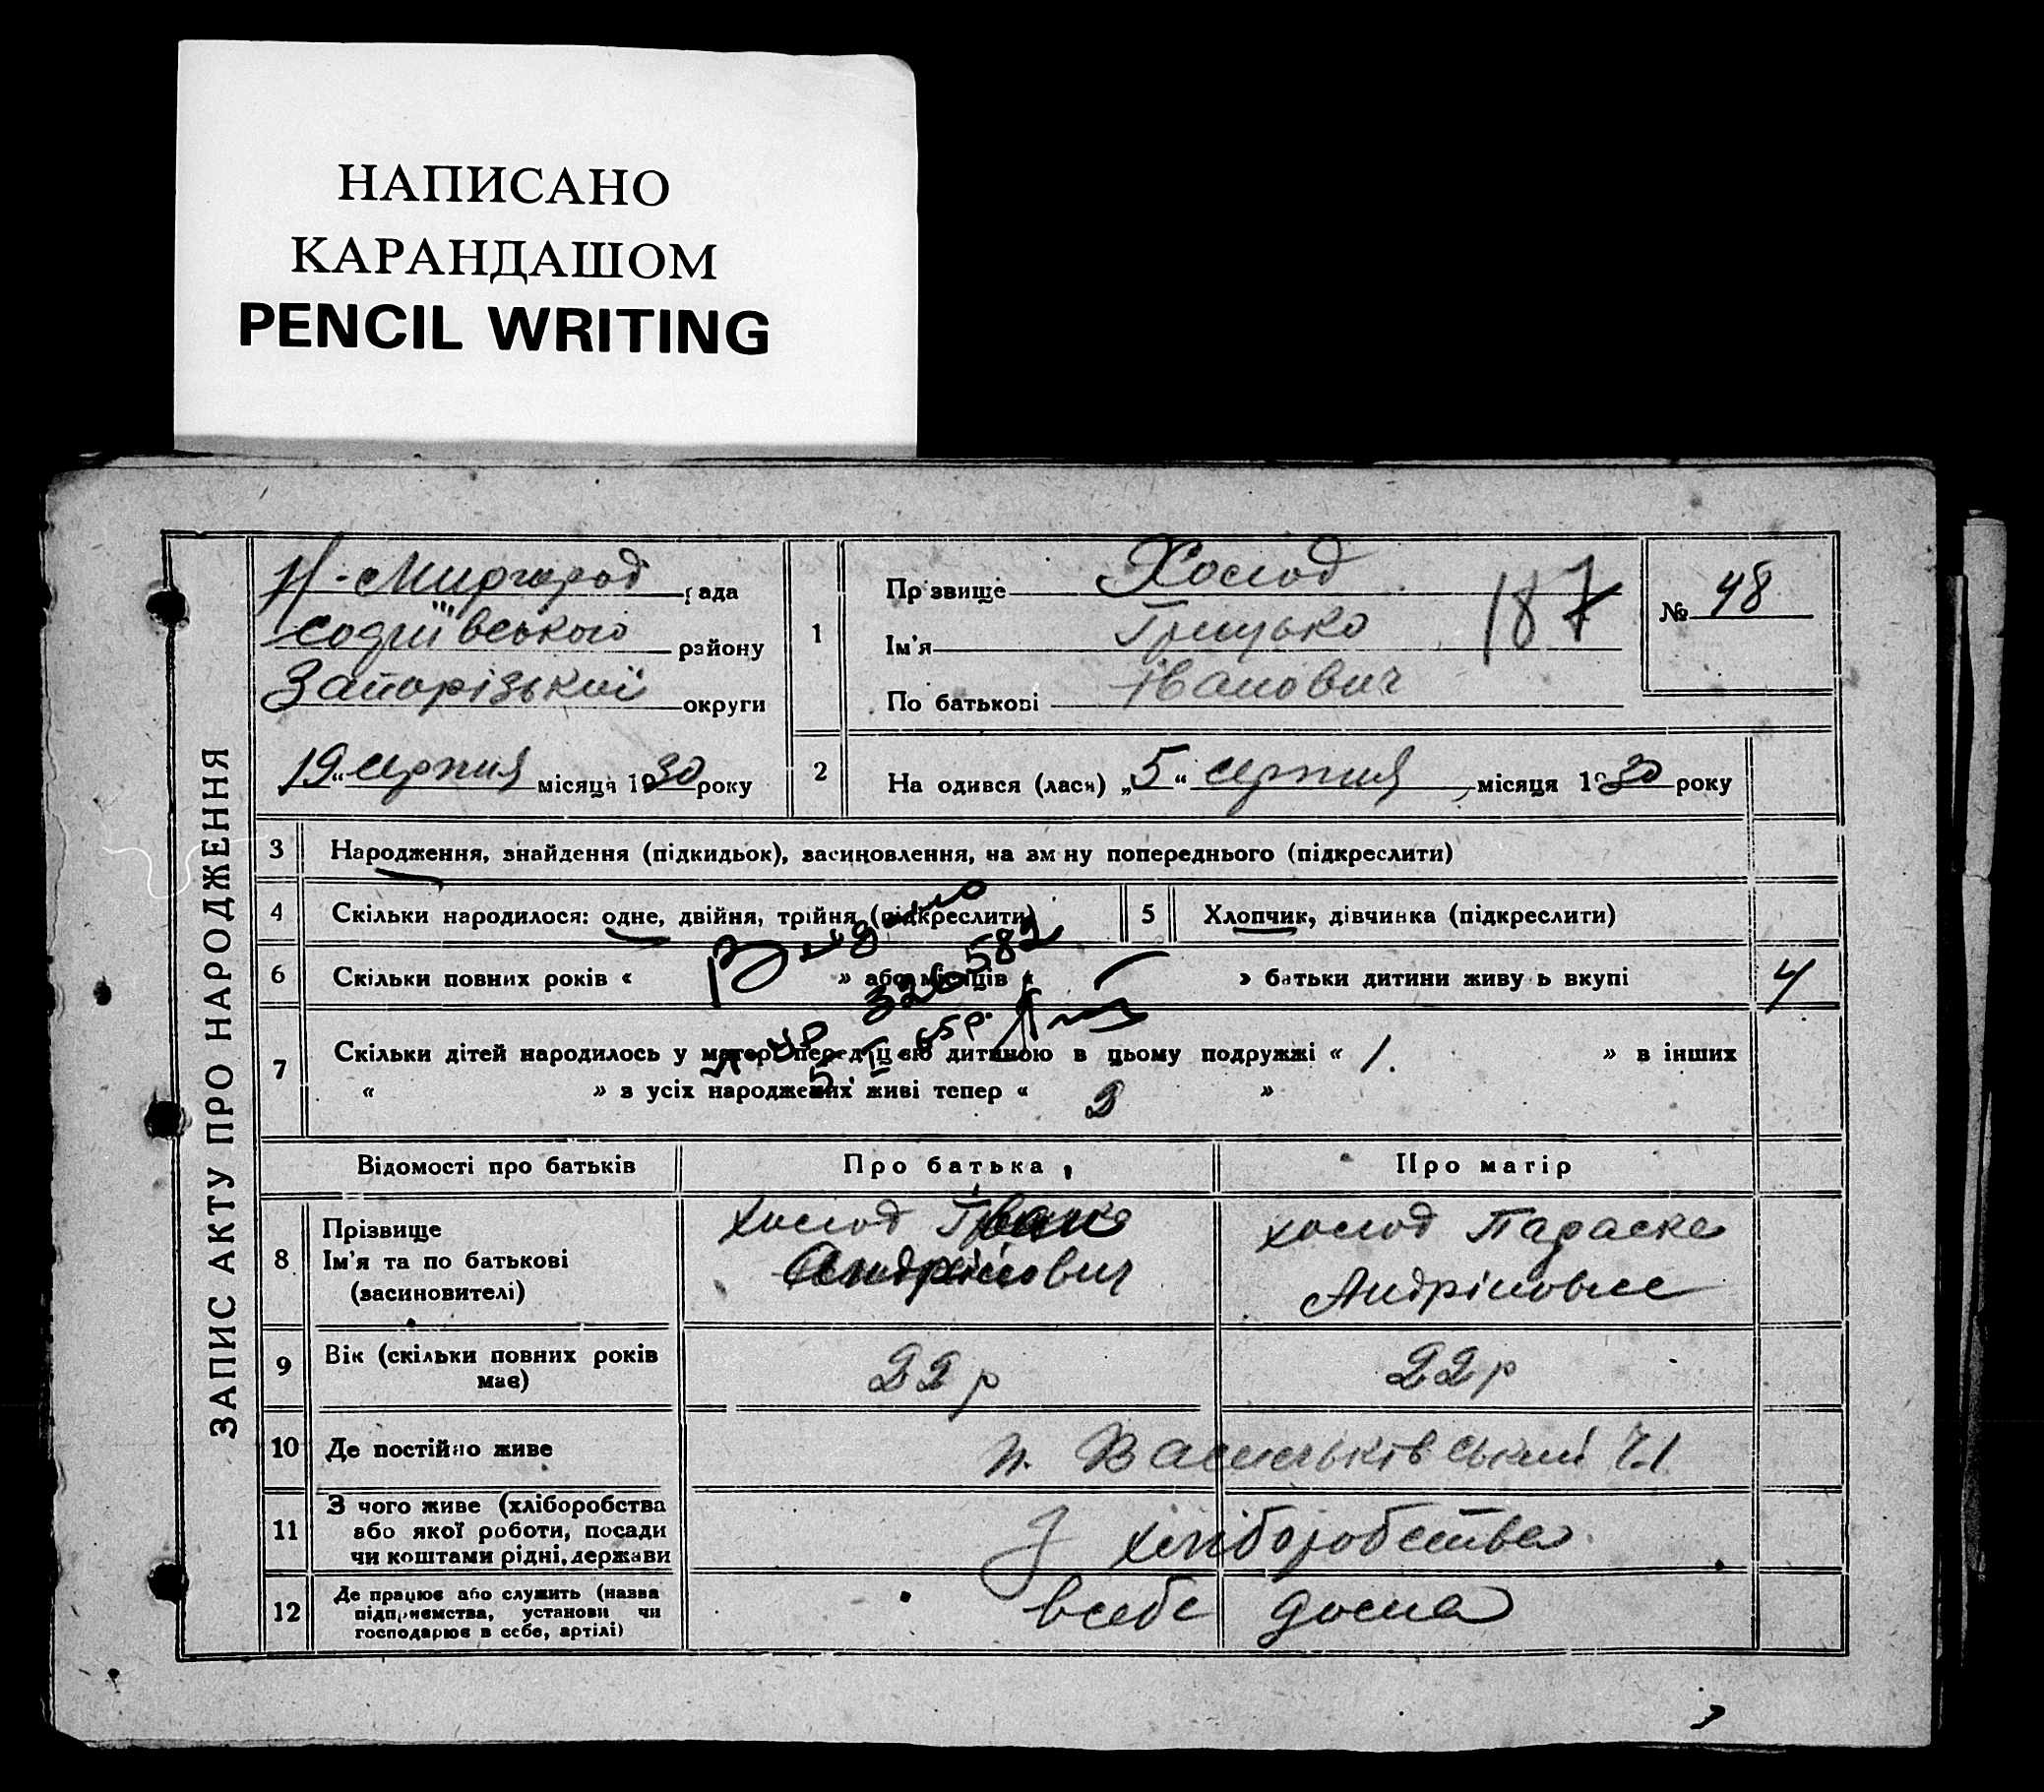 НАПИСАНО
КАРАНДАШОМ
PENCIL WRITING
ЗАПИС АКТУ ПРО НАРОДЖЕННЯ
Н-Миргород рада
Софіївського району
Запорізький округи
19 “ серпня місяця 1930 року
1
Прізвище Холод
Ім'я Грицько
По батькові Іванович
187
№ 48
2 На одився (лася) „5“ серпня місяця 1930 року
3 Народження, знайдення (підкидьок), засиновлення, на зміну попереднього (підкреслити)
4 Скільки народилося: одне, двійня, трійня (підкреслити)
5 Хлопчик, дівчинка (підкреслити)
6 Скільки повних років « » або місяців « » батьки дитини живуь вкупі 4
7 Скільки дітей народилось у матері перед цією дитиною в цьому подружжі « 1. » в інших
« » з усіх народжених живі тепер « 2 »
Видано
326582
5. II 65р.
Відомості про батьків Про батька Про матір
8 Прізвище
Ім'я та по батькові
(засиновителі)
Холод Іван
Андрійович
Холод Параска
Андріновна
9 Вік (скільки повних років
має)
22 р 22 р
10 Де постійно живе
п. Васильківський ч.1
11 З чого живе (хліборобства
або якої роботи, посади
чи коштами рідні, держави
З хліборобства
12 Де працює або служить (назва
підприємства, установи чи
господарює в себе, артілі)
в себе дома